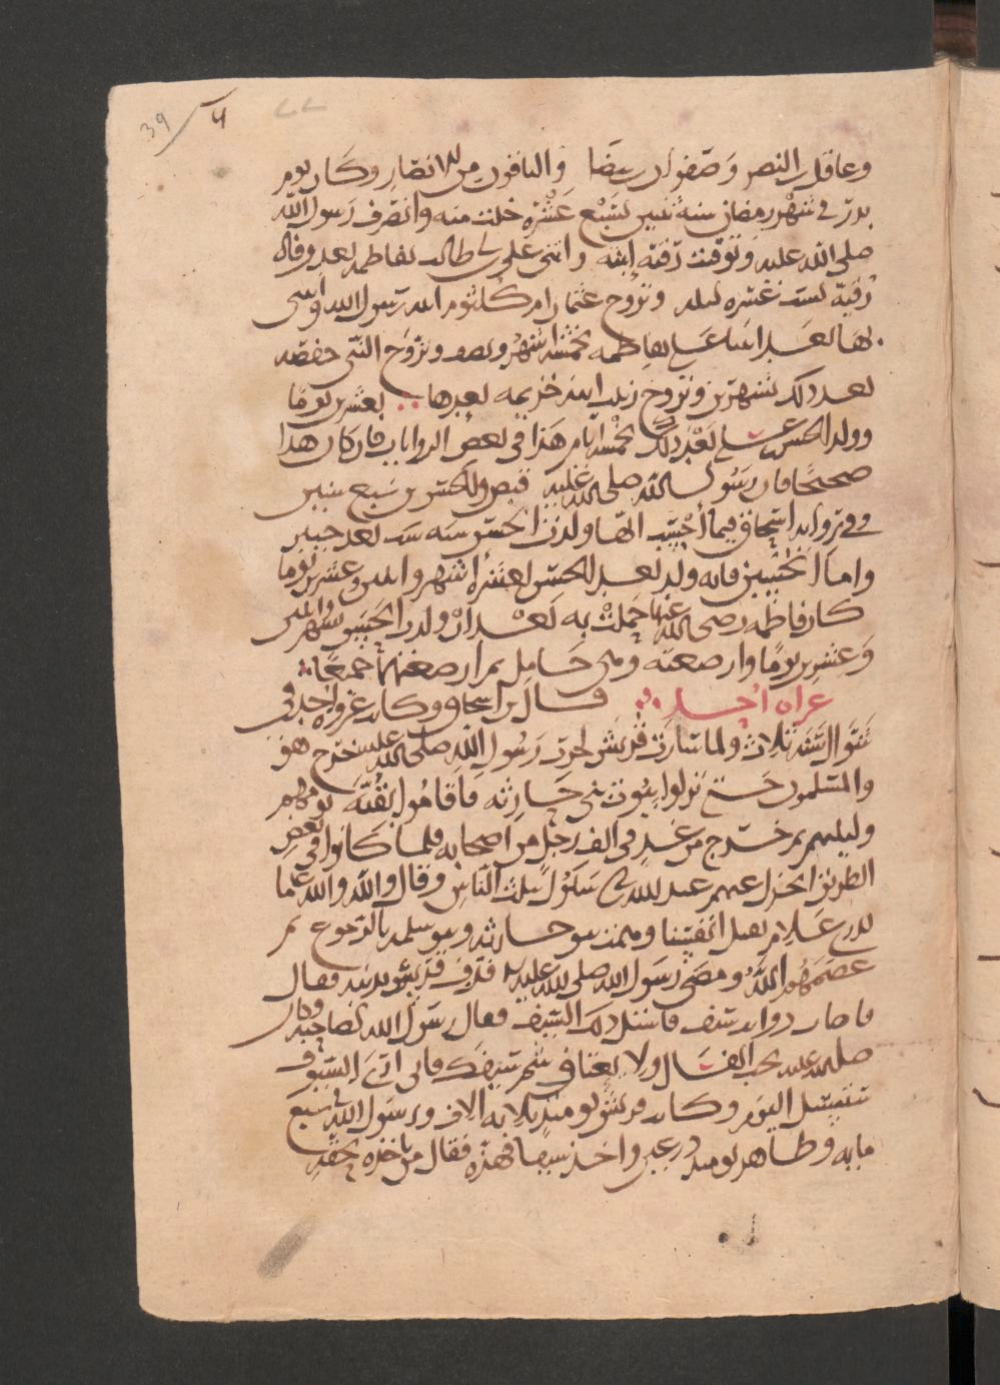 39 / 4
وعاقل بن البكير وصفوان بن بيضا والباقون من الانصار وكان يوم
بدر في شهر رمضان سنة ثنتين لسبع عشرة خلت منه وانصرف رسول الله
صلى الله عليه وتوفيت رقية ابنته وابتنى علي بن ابي طالب بفاطمة بعد وفاة
رقية لست عشره ليلة وتزوج عثمان ام كلثوم ابنة رسول الله وابتنى
بها بعد ابتنا علي بفاطمه بخمسة اشهر ونصف وتزوج النبي حفصه
بعد ذلك بشهرين وتزوج زينب ابنة خزيمه بعدها بعشرين يوما
وولد الحسن بن علي بعد ذلك بخمسة ايام هذا في بعض الروايات فان كان هذا
صحيحا فان رسول الله صلى الله عليه قبض والحسن بن سبع سنين
وفي رواية ابن اسحاق فيما احسب انها ولدت الحسن سنة ست بعد حنين
واما الحسين فانه ولد بعد الحسن لعشرة اشهر واثنين وعشرين يوما
كان فاطمه رضي الله عنها حملت به بعد ان ولدت الحسن بشهر واثنين
وعشرين يوما وارضعته وهي حامل ثم ارضعتهما جميعا
غزاة احد قال ابن اسحاق وكان غزوة احد في
شوال سنة ثلاث ولما سارت قريش لحرب رسول الله صلى الله عليه خرج هو
والمسلمون حتى نزلوا بيوت بني حارثه فاقاموا بقية يومهم
وليلتهم ثم خرج من غد في الف رجل من اصحابه فلما كانوا في بعض
الطريق انخزل عنهم عبد الله بن ابي سلول بثلث الناس وقال والله والله ما
ندري علام نقتل انفسنا وهمت بنو حارثه وبنو سلمه بالرجوع ثم
عصمهم الله ومضى رسول الله صلى الله عليه فذب فرس بذنبه فقال
فاصاب ذؤابة سيف فاستل ذلك السيف فقال رسول الله لصاحبه وكان
صلى الله عليه يحب الفال ولا يعتاف شم سيفك فاني ارى السيوف
ستستل اليوم وكانت قريش يومئذ ثلاثه الاف ورسول الله في سبع
مايه وظاهر يومئذ درعين واخذ سيفا فهزه فقال من ياخذه بحقه